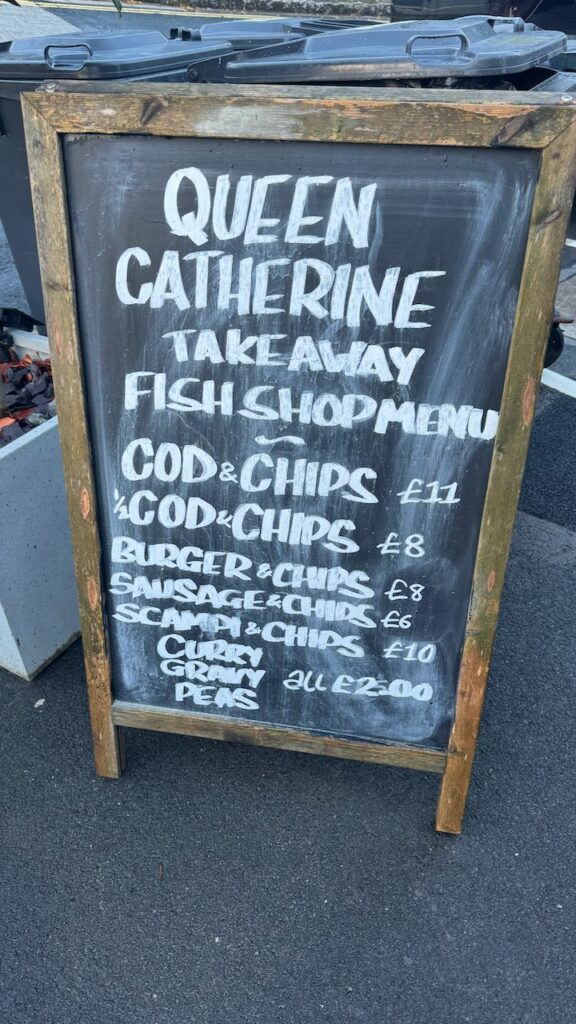 QUEEN
CATHERINE
TAKEAWAY
FISH SHOP MENU
COD & CHIPS £11
½ COD & CHIPS £8
BURGER & CHIPS £8
SAUSAGE & CHIPS £6
SCAMPI & CHIPS £10
CURRY
GRAVY all £2500
PEAS